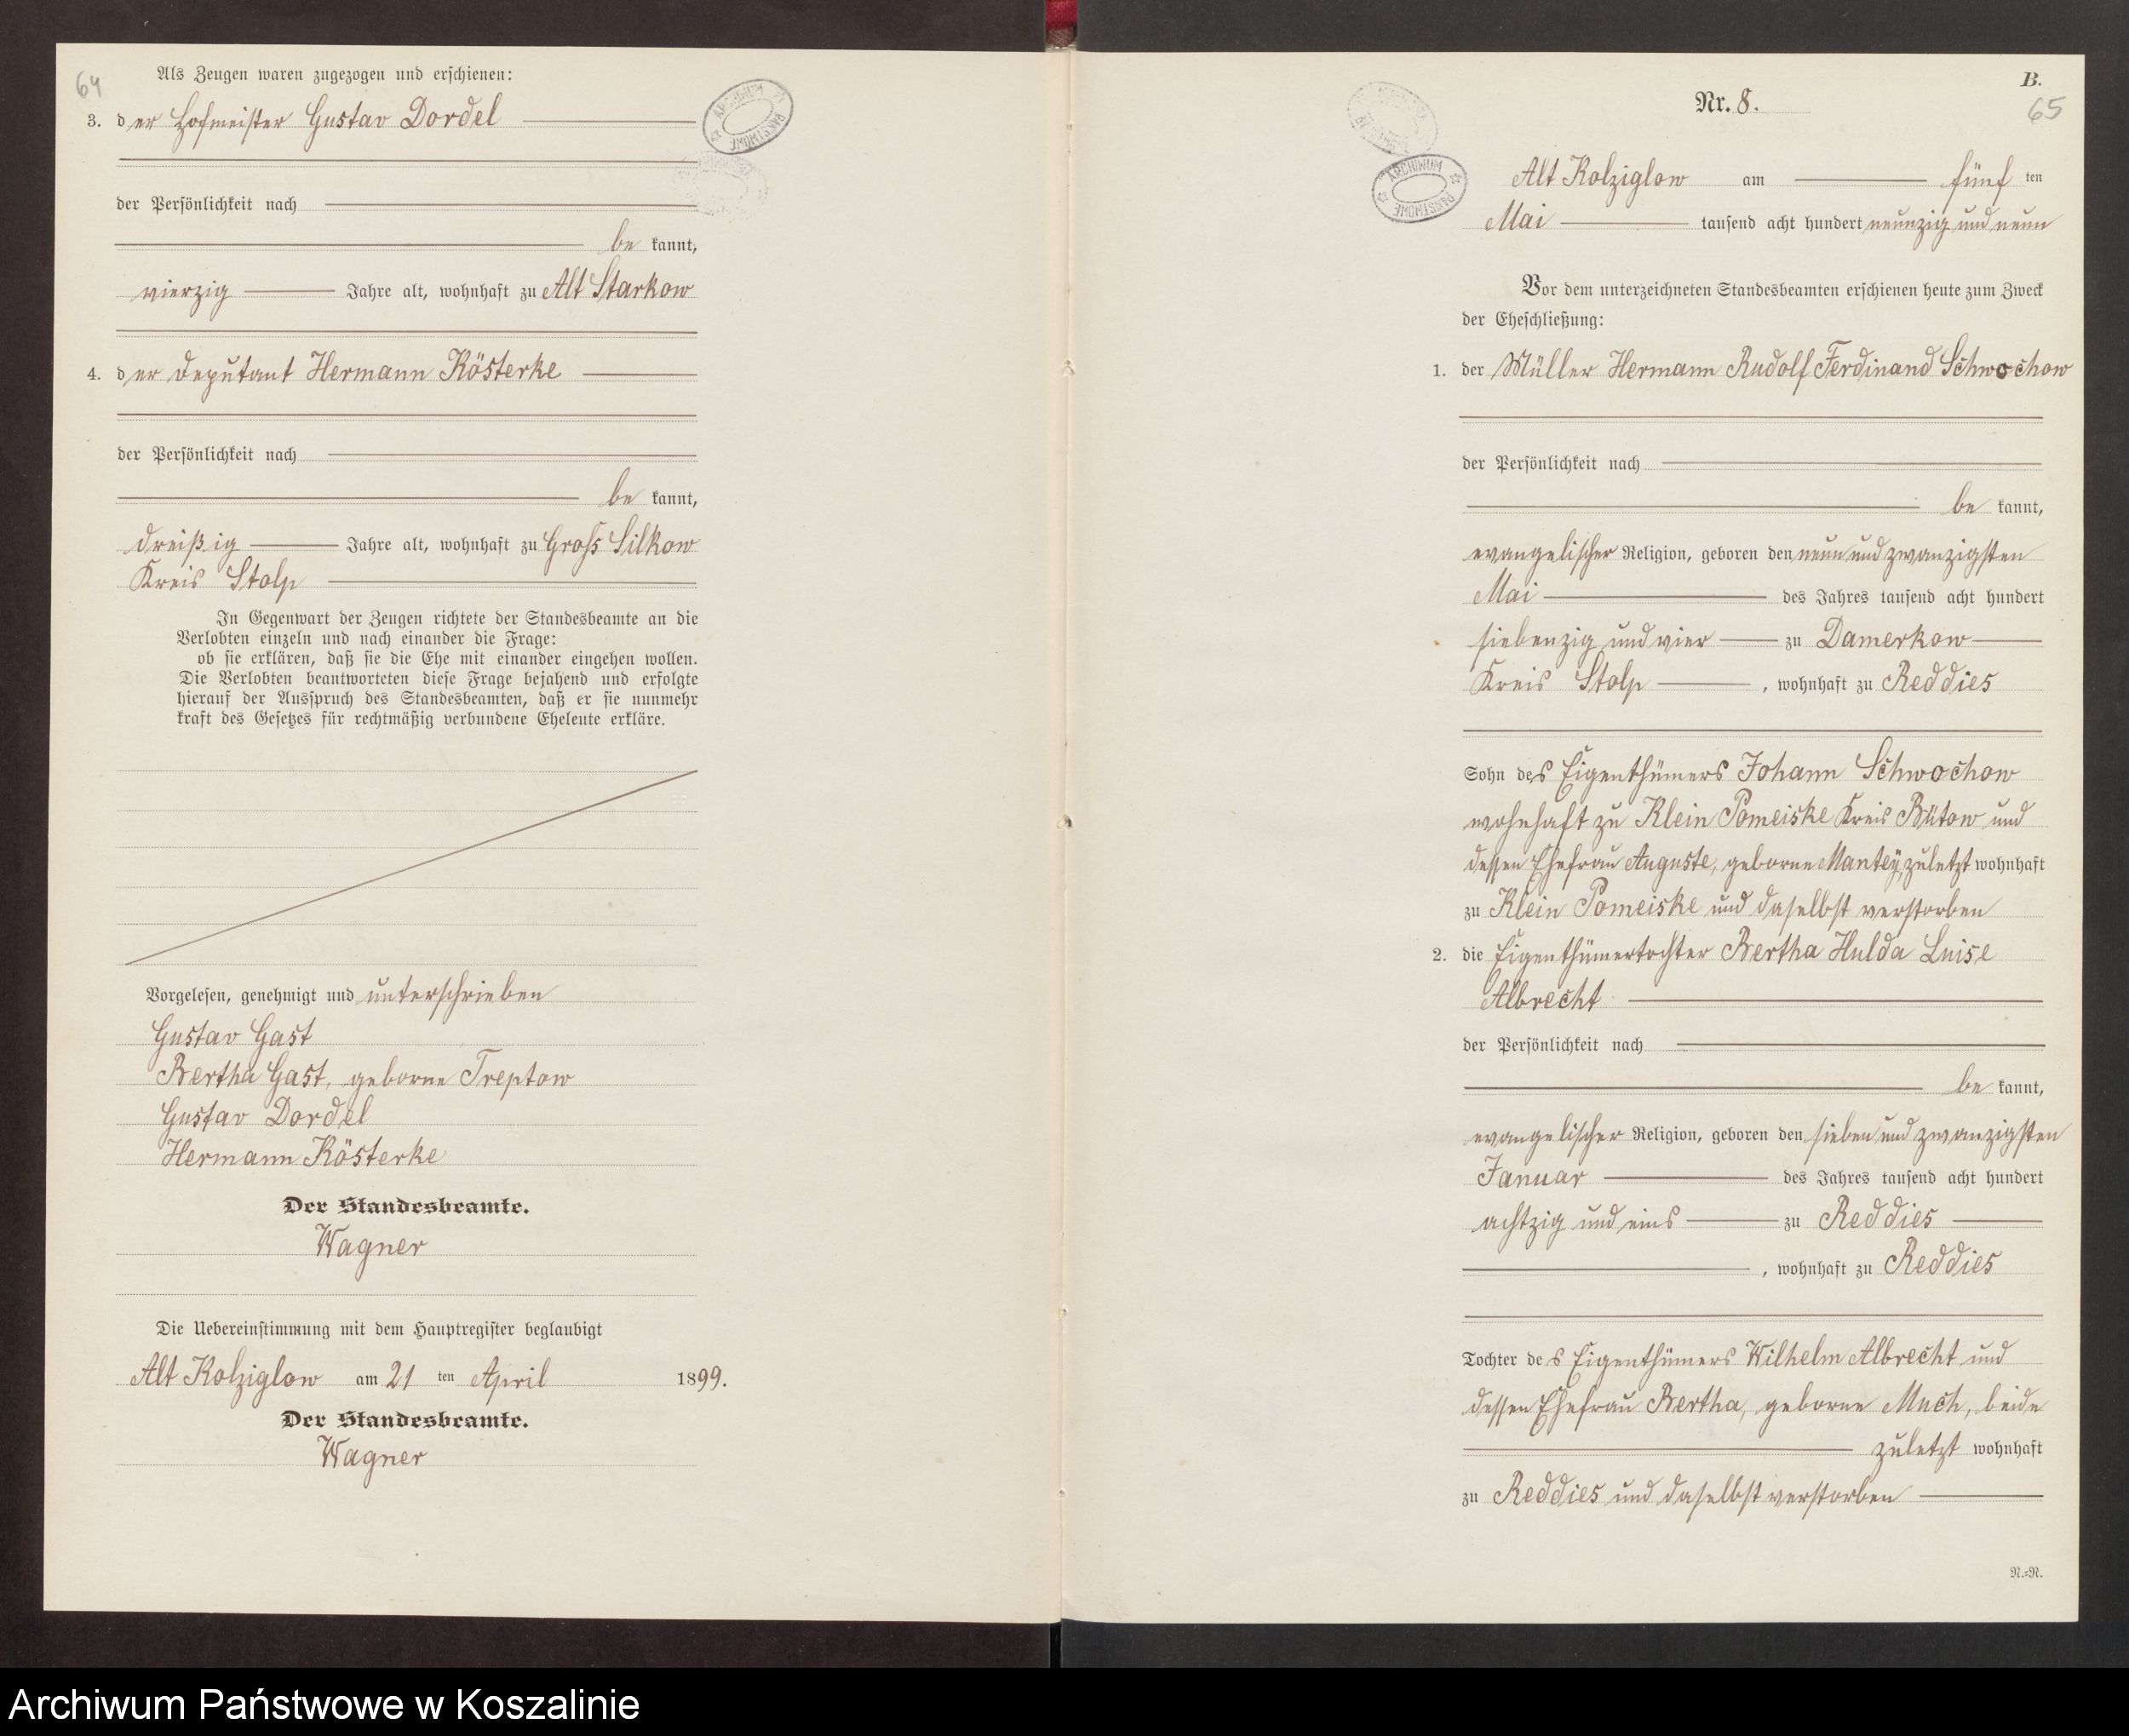 64
Als Zeugen waren zugezogen und erschienen:
3. der Hofmeister Gustav Dordel
der Persönlichkeit nach
be kannt,
vierzig Jahre alt, wohnhaft zu Alt Starkow
4. der Deputant Hermann Kösterke
der Persönlichkeit nach
be kannt,
dreißig Jahre alt, wohnhaft zu Groß Silkow
Kreis Stolp
In Gegenwart der Zeugen richtete der Standesbeamte an die
Verlobten einzeln und nach einander die Frage:
ob sie erklären, daß sie die Ehe mit einander eingehen wollen.
Die Verlobten beantworteten diese Frage bejahend und erfolgte
hierauf der Ausspruch des Standesbeamten, daß er sie nunmehr
kraft des Gesetzes für rechtmäßig verbundene Eheleute erkläre.
Vorgelesen, genehmigt und unterschrieben
Gustav Gast
Bertha Gast, geborne Treptow
Gustav Dordel
Hermann Kösterke
Der Standesbeamte.
Wagner
Die Uebereinstimmung mit dem Hauptregister beglaubigt
Alt Kolziglow am 21 ten April 1899.
Der Standesbeamte.
Wagner
ARCHIWUM PAŃSTWOWE
B.
Nr. 8.
65
ARCHIWUM PAŃSTWOWE
Alt Kolziglow am fünf ten
Mai tausend acht hundert neunzig und neun
Vor dem unterzeichneten Standesbeamten erschienen heute zum Zweck
der Eheschließung:
1. der Müller Hermann Rudolf Ferdinand Schwochow
der Persönlichkeit nach
be kannt,
evangelischer Religion, geboren den neun und zwanzigsten
Mai des Jahres tausend acht hundert
siebenzig und vier zu Damerkow
Kreis Stolp, wohnhaft zu Reddies
Sohn des Eigenthümers Johann Schwochow
wohnhaft zu Klein Pomeiske Kreis Bütow und
dessen Ehefrau Auguste, geborne Mantey, zuletzt wohnhaft
zu Klein Pomeiske und daselbst verstorben
2. die Eigenthümertochter Bertha Hulda Luise
Albrecht
der Persönlichkeit nach
be kannt,
evangelischer Religion, geboren den sieben und zwanzigsten
Januar des Jahres tausend acht hundert
achtzig und eins zu Reddies
, wohnhaft zu Reddies
Tochter des Eigenthümers Wilhelm Albrecht und
dessen Ehefrau Bertha, geborne Much, beide
zuletzt wohnhaft
zu Reddies und daselbst verstorben
N.=N.
Archiwum Państwowe w Koszalinie